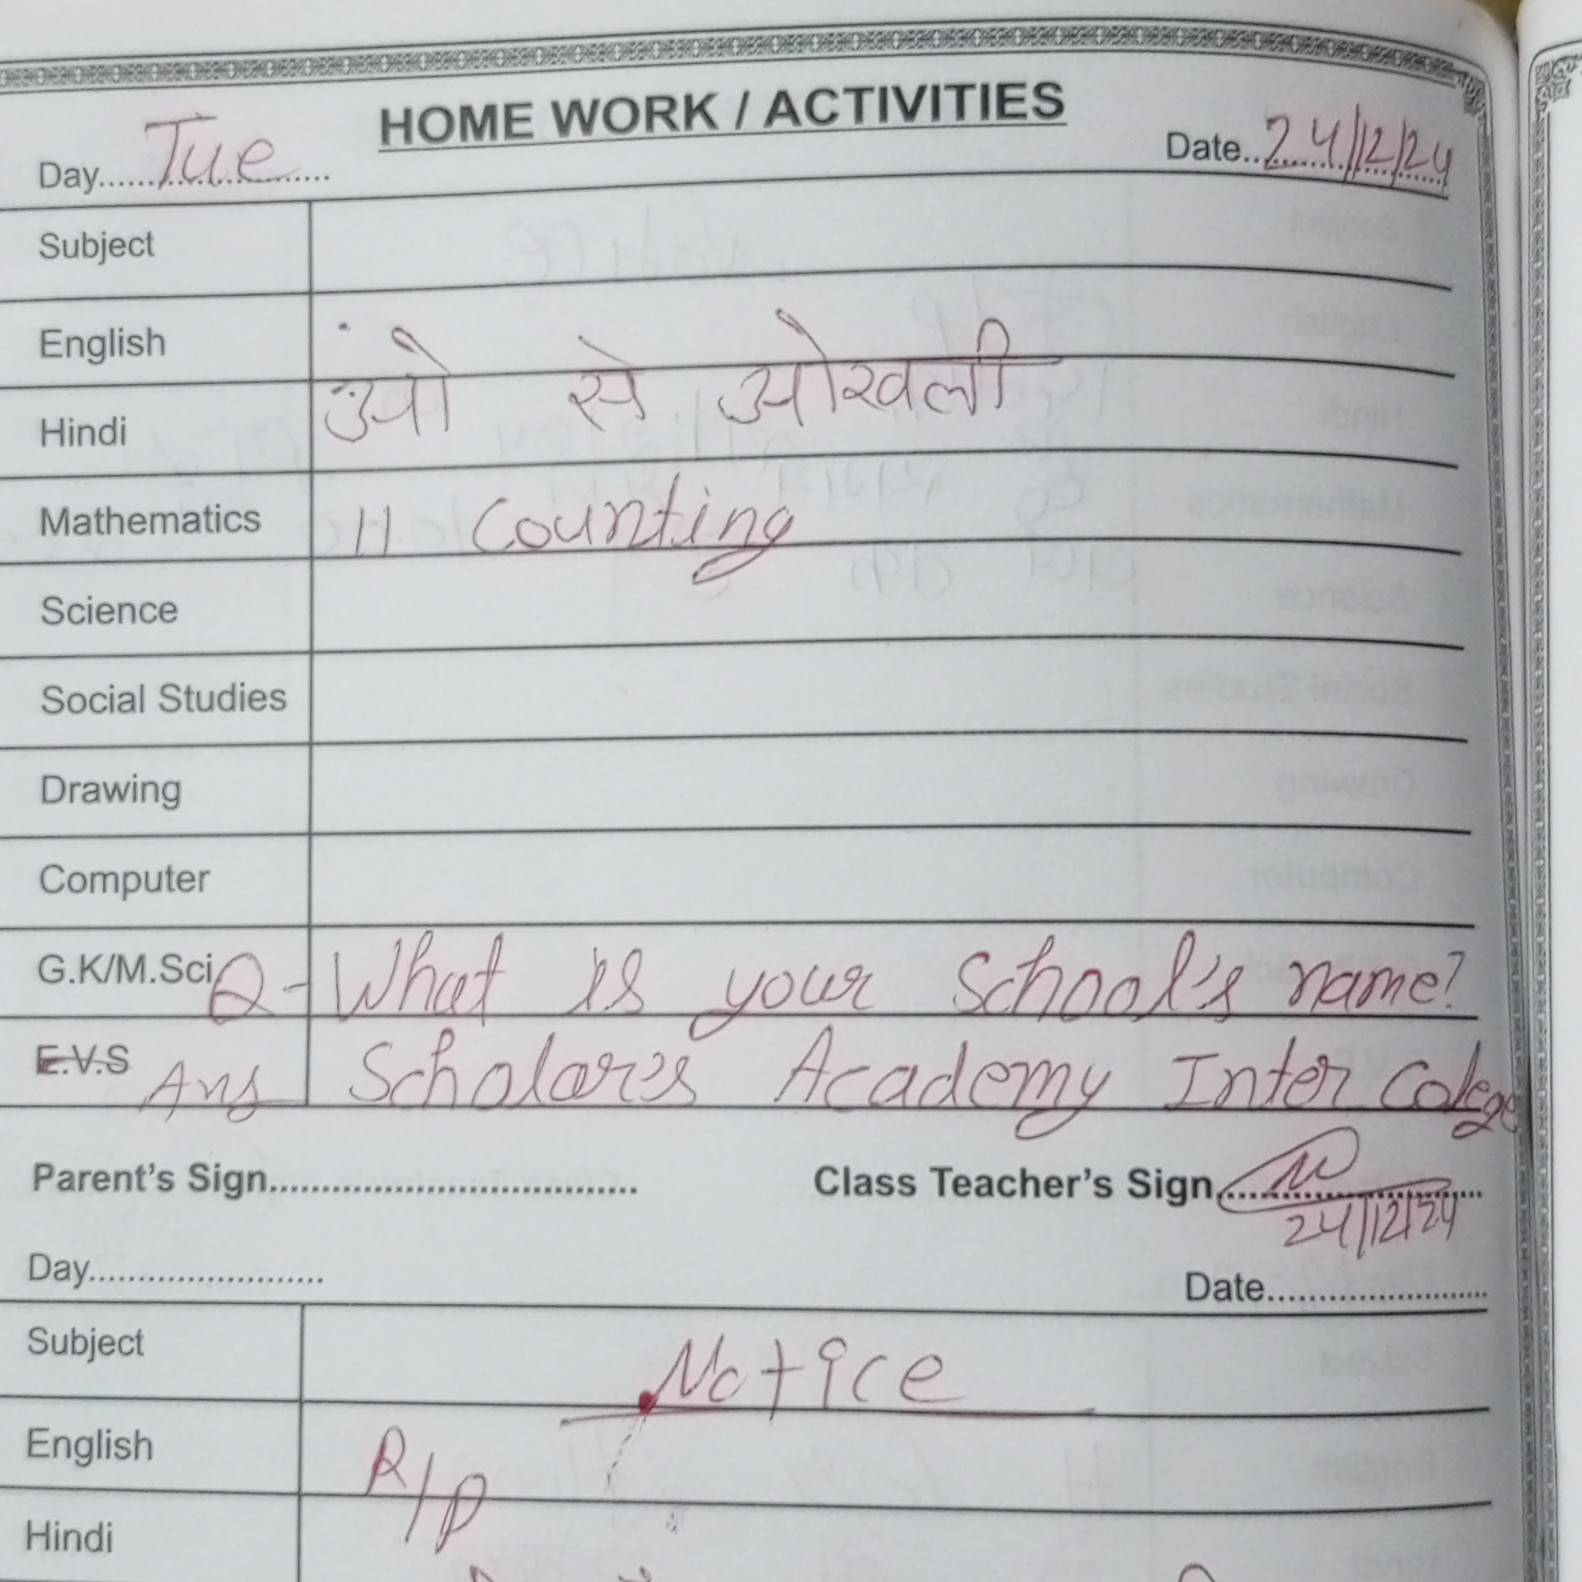 HOME WORK / ACTIVITIES
Day...... Tue Date.. 24/12/24
Subject
English
Hindi ओ से ओखली
Mathematics 11 Counting
Science
Social Studies
Drawing
Computer
G.K/M.Sci Q- What is your School's name?
E.V.S Ans Scholar's Academy Inter Colege
Parent's Sign.................................... Class Teacher's Sign....................
24/12/24
Day....................... Date......................
Subject Notice
English R/P
Hindi